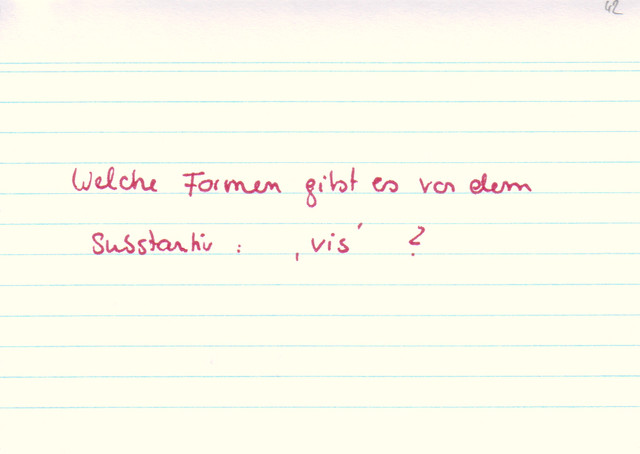 42
Welche Formen gibt es von dem
Substantiv : ‚vis' ?